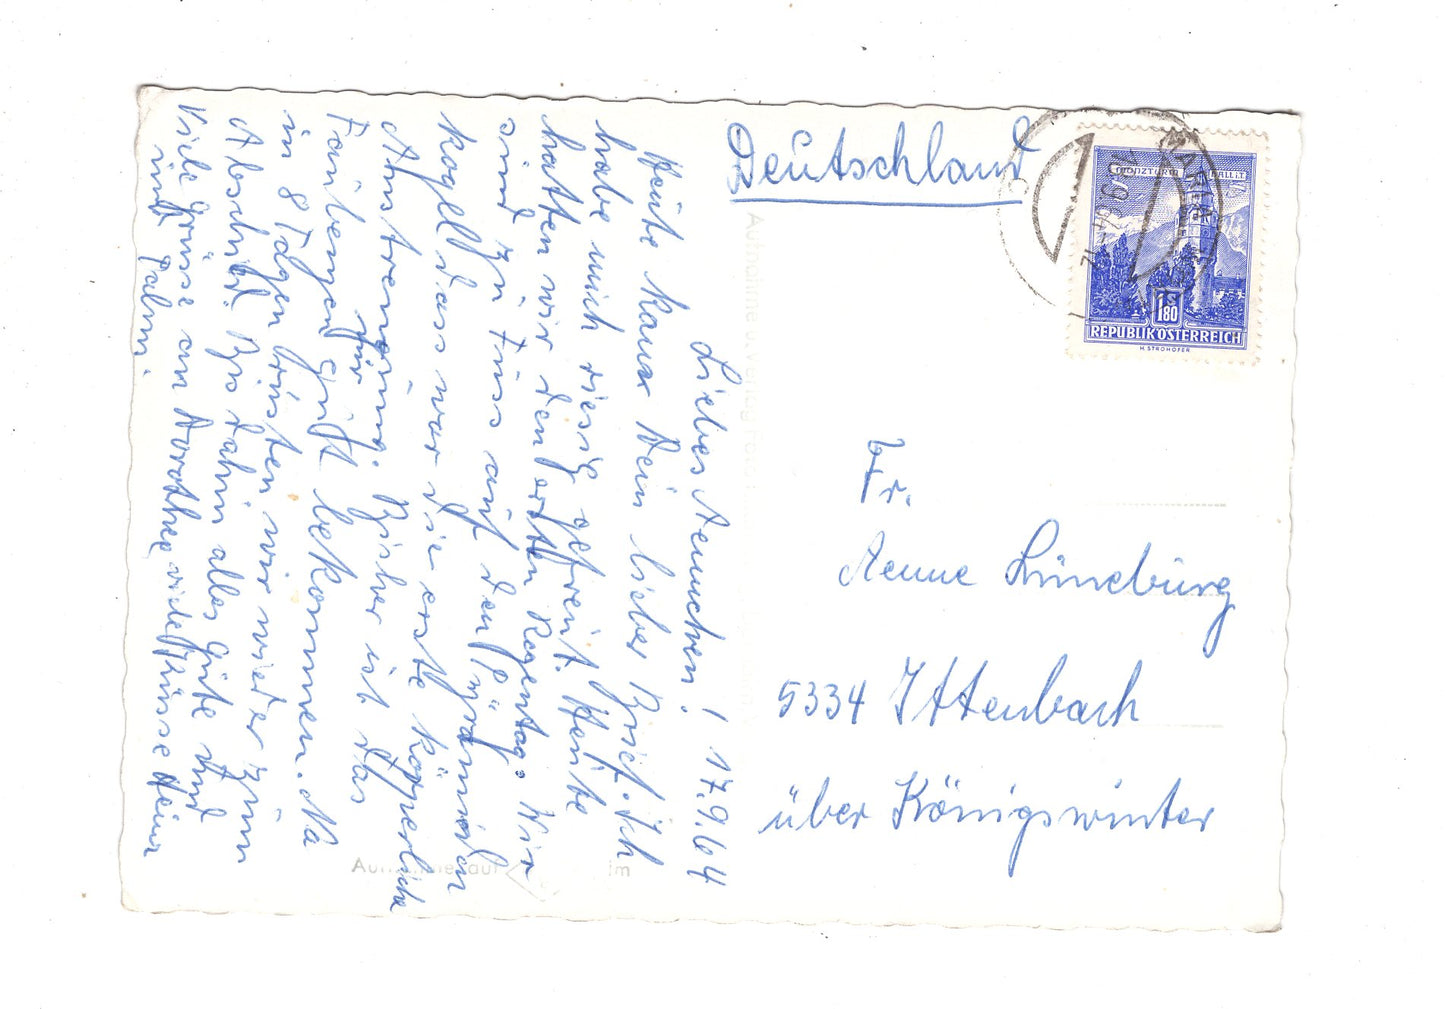 Liebes Aennchen! 17.9.64
Heute kam Dein lieber Brief. Ich
habe mich riesig gefreut. Heute
hatten wir den ersten Regentag. Wir
sind zu Fuss auf den
kogel. Das war die erste körperliche
Anstrengung. Bisher ist das
Faulenzen mir gut bekommen. Na
in 8 Tagen rüsten wir wieder zum
Abschied. Bis dahin alles Gute und
viele Grüsse an Dorothee, viele Grüsse Deine
und Palm.
Deutschland
Fr.
Aenne Lüneburg
5334 Ittenbach
über Königswinter
MÜNZTURM HALL i.T.
1S 80
REPUBLIK ÖSTERREICH
H. STROHOFER
Aufnahme u. Verlag